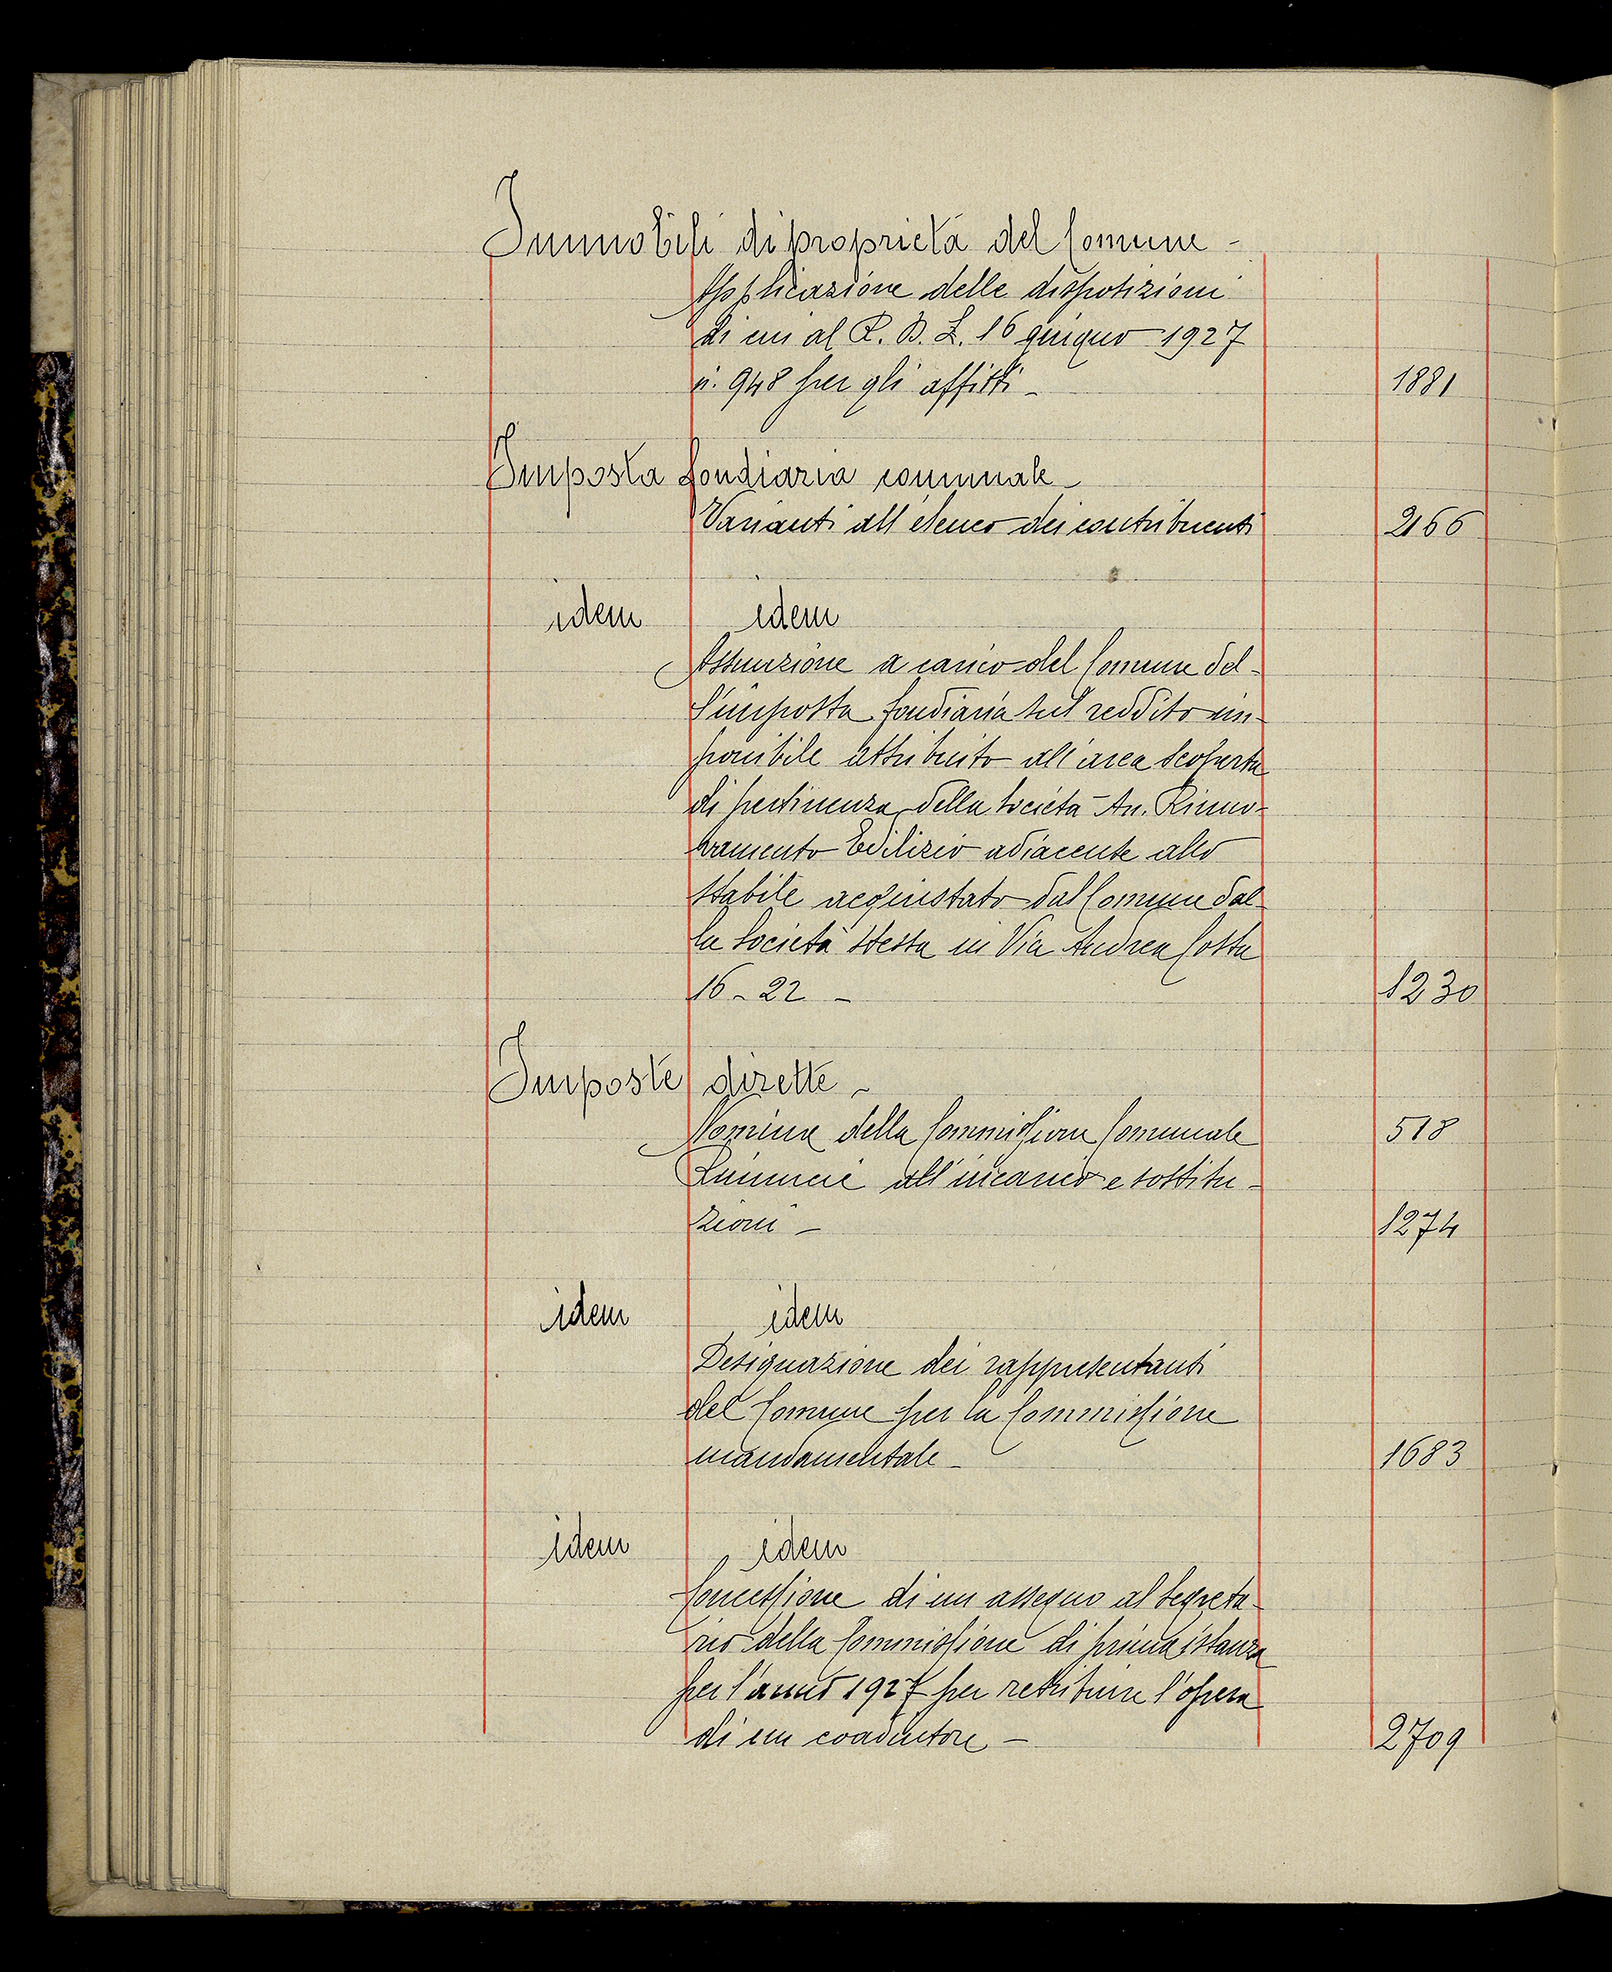 Immobili di proprietà del Comune -
Applicazione delle disposizioni
di cui al R. D. L. 16 giugno 1927
n. 948 per gli affitti - 1881
Imposta fondiaria comunale -
Varianti all'elenco dei contribuenti 2166
idem idem
Assunzione a carico del Comune del-
l'imposta fondiaria sul reddito im-
ponibile attribuito all'area scoperta
di pertinenza della Società An. Rinno-
vamento Edilizio adiacente allo
stabile acquistato dal Comune dal-
la Società stessa in Via Andrea Costa
16 - 22 - 1230
Imposte dirette -
Nomina della Commissione Comunale 518
Rinuncie all'incarico e sostitu-
zioni - 1274
idem idem
Designazione dei rappresentanti
del Comune per la Commissione
mandamentale - 1683
idem idem
Concessione di un assegno al Segreta-
rio della Commissione di prima istanza
per l'anno 1927 per retribuire l'opera
di un coadiutore - 2709